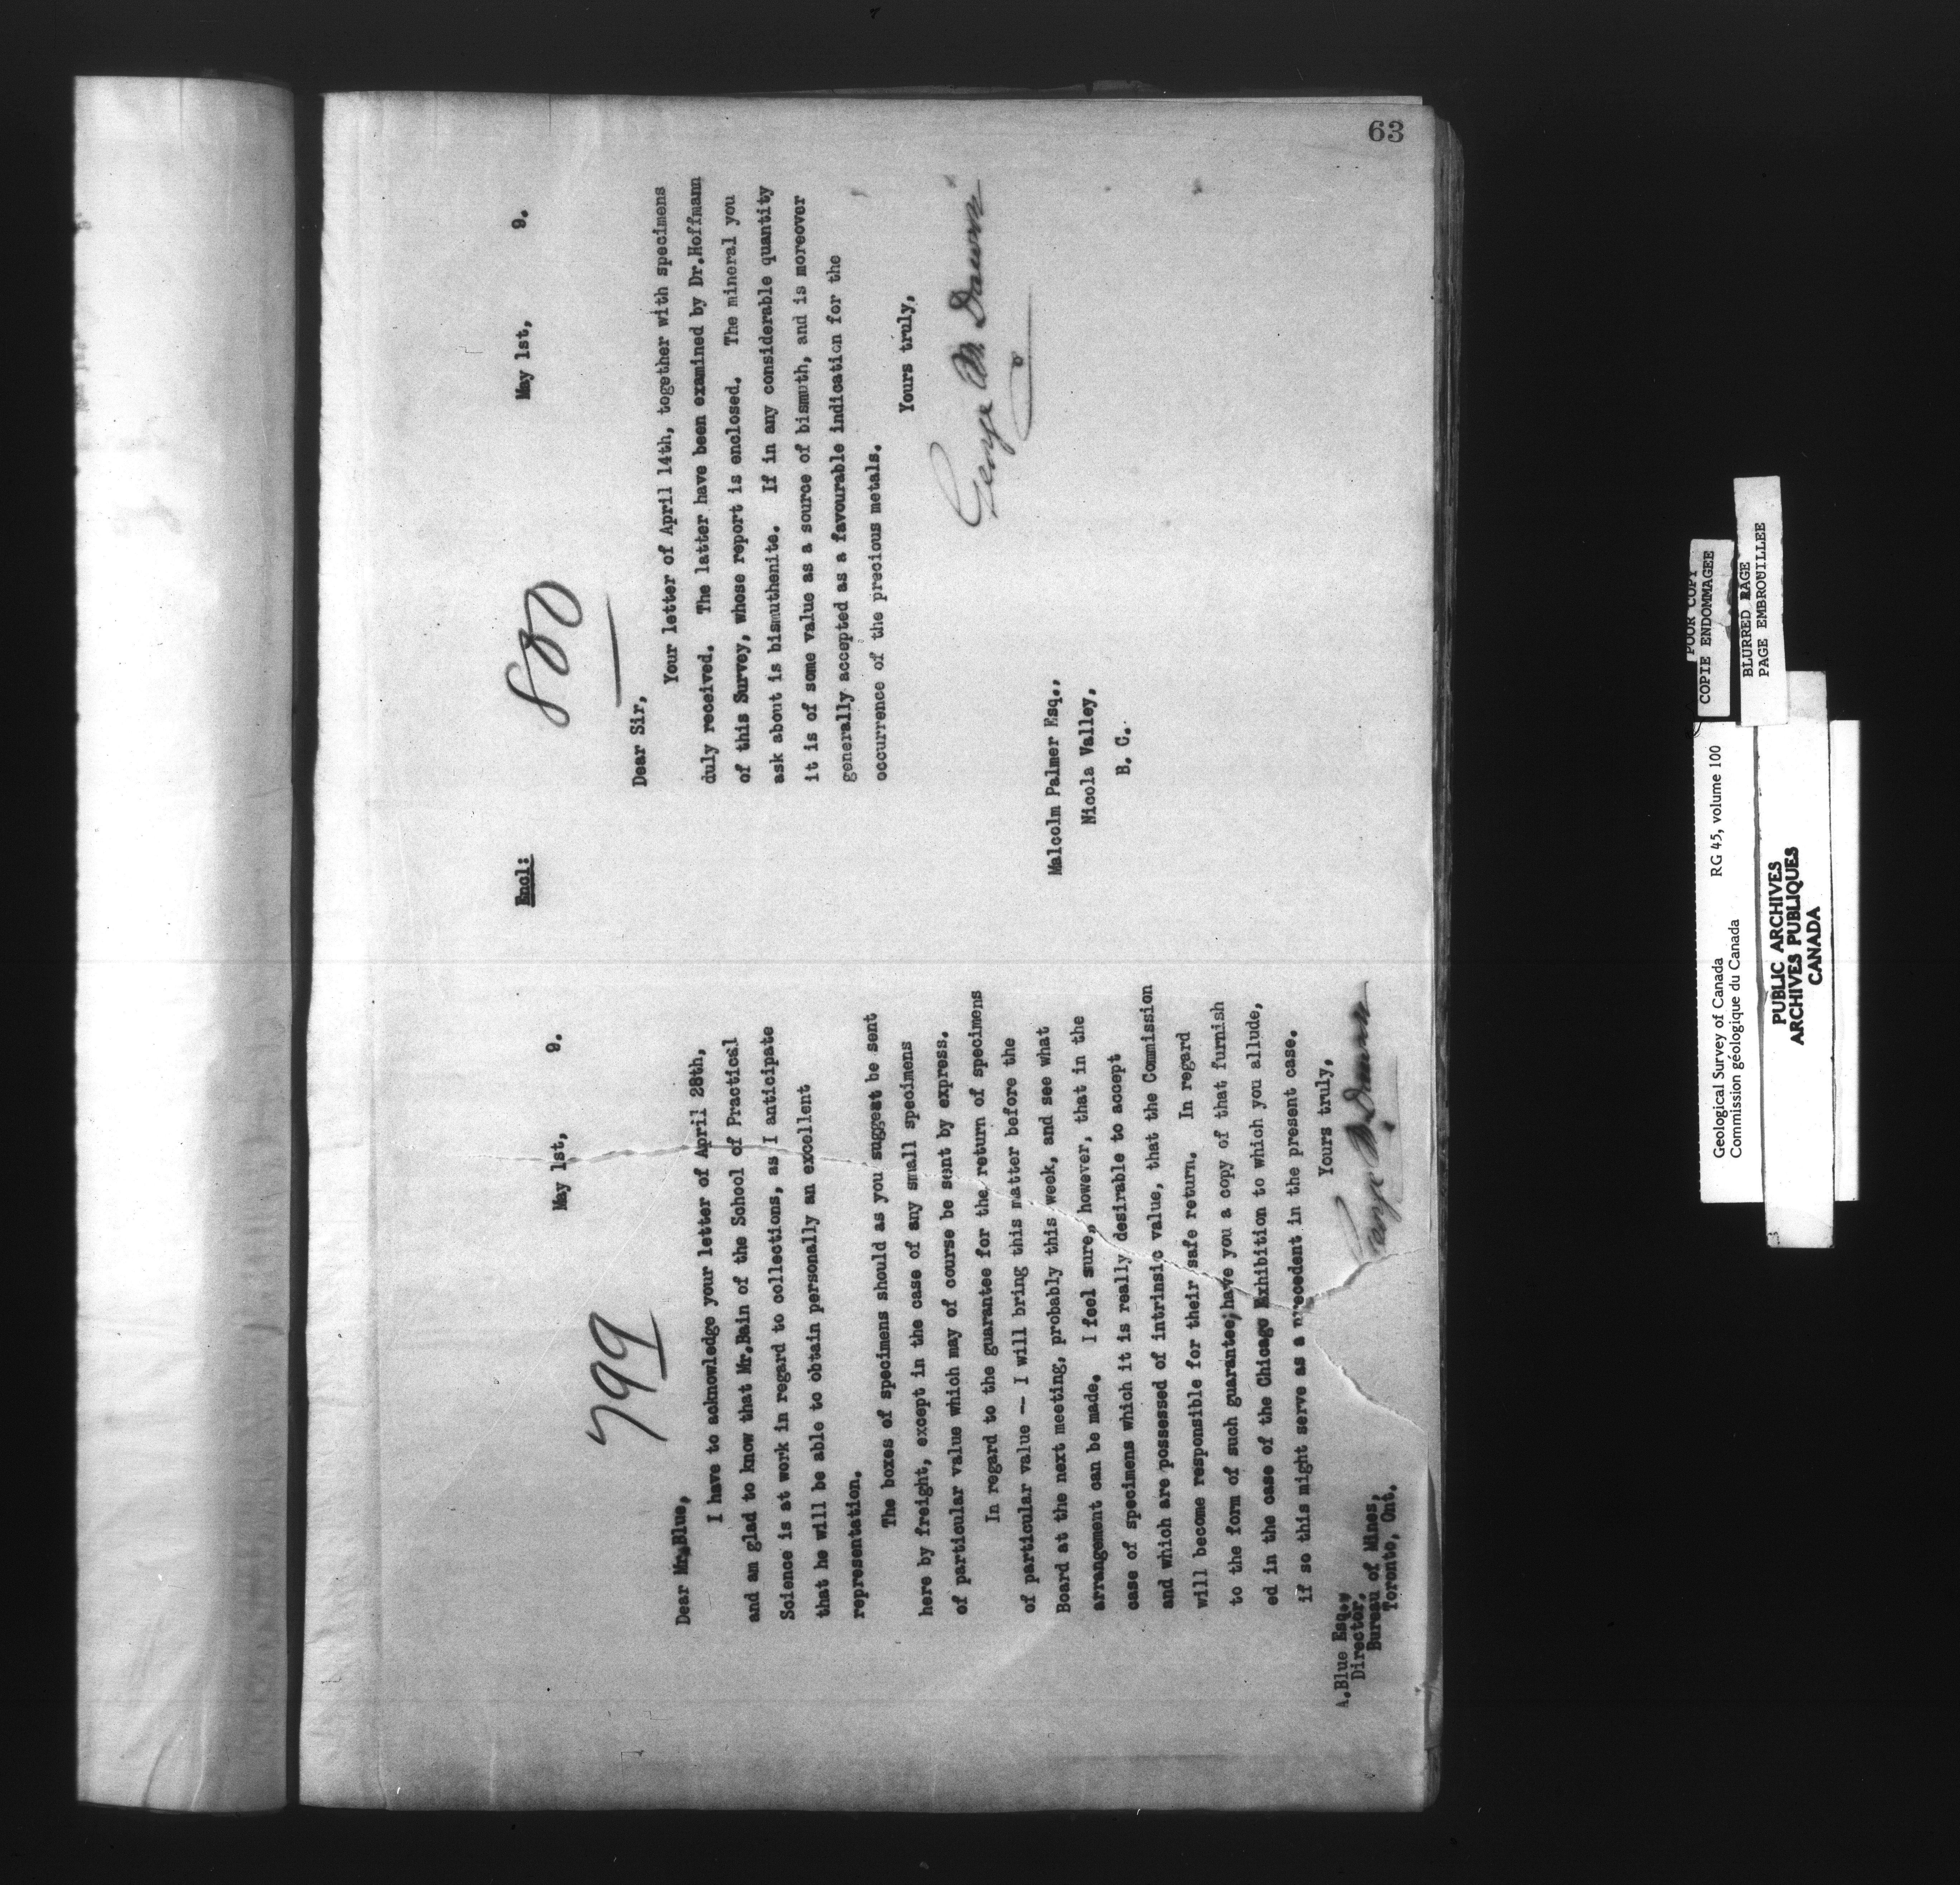 63
799
May 1st, 9.
Dear Mr.Blue,
I have to acknowledge your letter of April 28th,
and am glad to know that Mr.Bain of the School of Practical
Science is at work in regard to collections, as I anticipate
that he will be able to obtain personally an excellent
representation.
The boxes of specimens should as you suggest be sent
here by freight, except in the case of any small specimens
of particular value which may of course be sent by express.
In regard to the guarantee for the return of specimens
of particular value — I will bring this matter before the
Board at the next meeting, probably this week, and see what
arrangement can be made. I feel sure, however, that in the
case of specimens which it is really desirable to accept
and which are possessed of intrinsic value, that the Commission
will become responsible for their safe return. In regard
to the form of such guarantee;have you a copy of that furnish
ed in the case of the Chicago Exhibition to which you allude,
if so this might serve as a precedent in the present case.
Yours truly,
George M. Dawson
A.Blue Esq.,
Director,
Bureau of Mines,
Toronto, Ont.
Encl:
880
May 1st, 9.
Dear Sir,
Your letter of April 14th, together with specimens
duly received. The latter have been examined by Dr.Hoffmann
of this Survey, whose report is enclosed. The mineral you
ask about is bismuthenite. If in any considerable quantity
it is of some value as a source of bismuth, and is moreover
generally accepted as a favourable indication for the
occurrence of the precious metals.
Yours truly,
George M. Dawson
Malcolm Palmer Esq.,
Nicola Valley,
B. C.
Geological Survey of Canada RG 45, volume 100
Commission géologique du Canada
PUBLIC ARCHIVES
ARCHIVES PUBLIQUES
CANADA
POOR COPY
COPIE ENDOMMAGEE
BLURRED PAGE
PAGE EMBROUILLEE